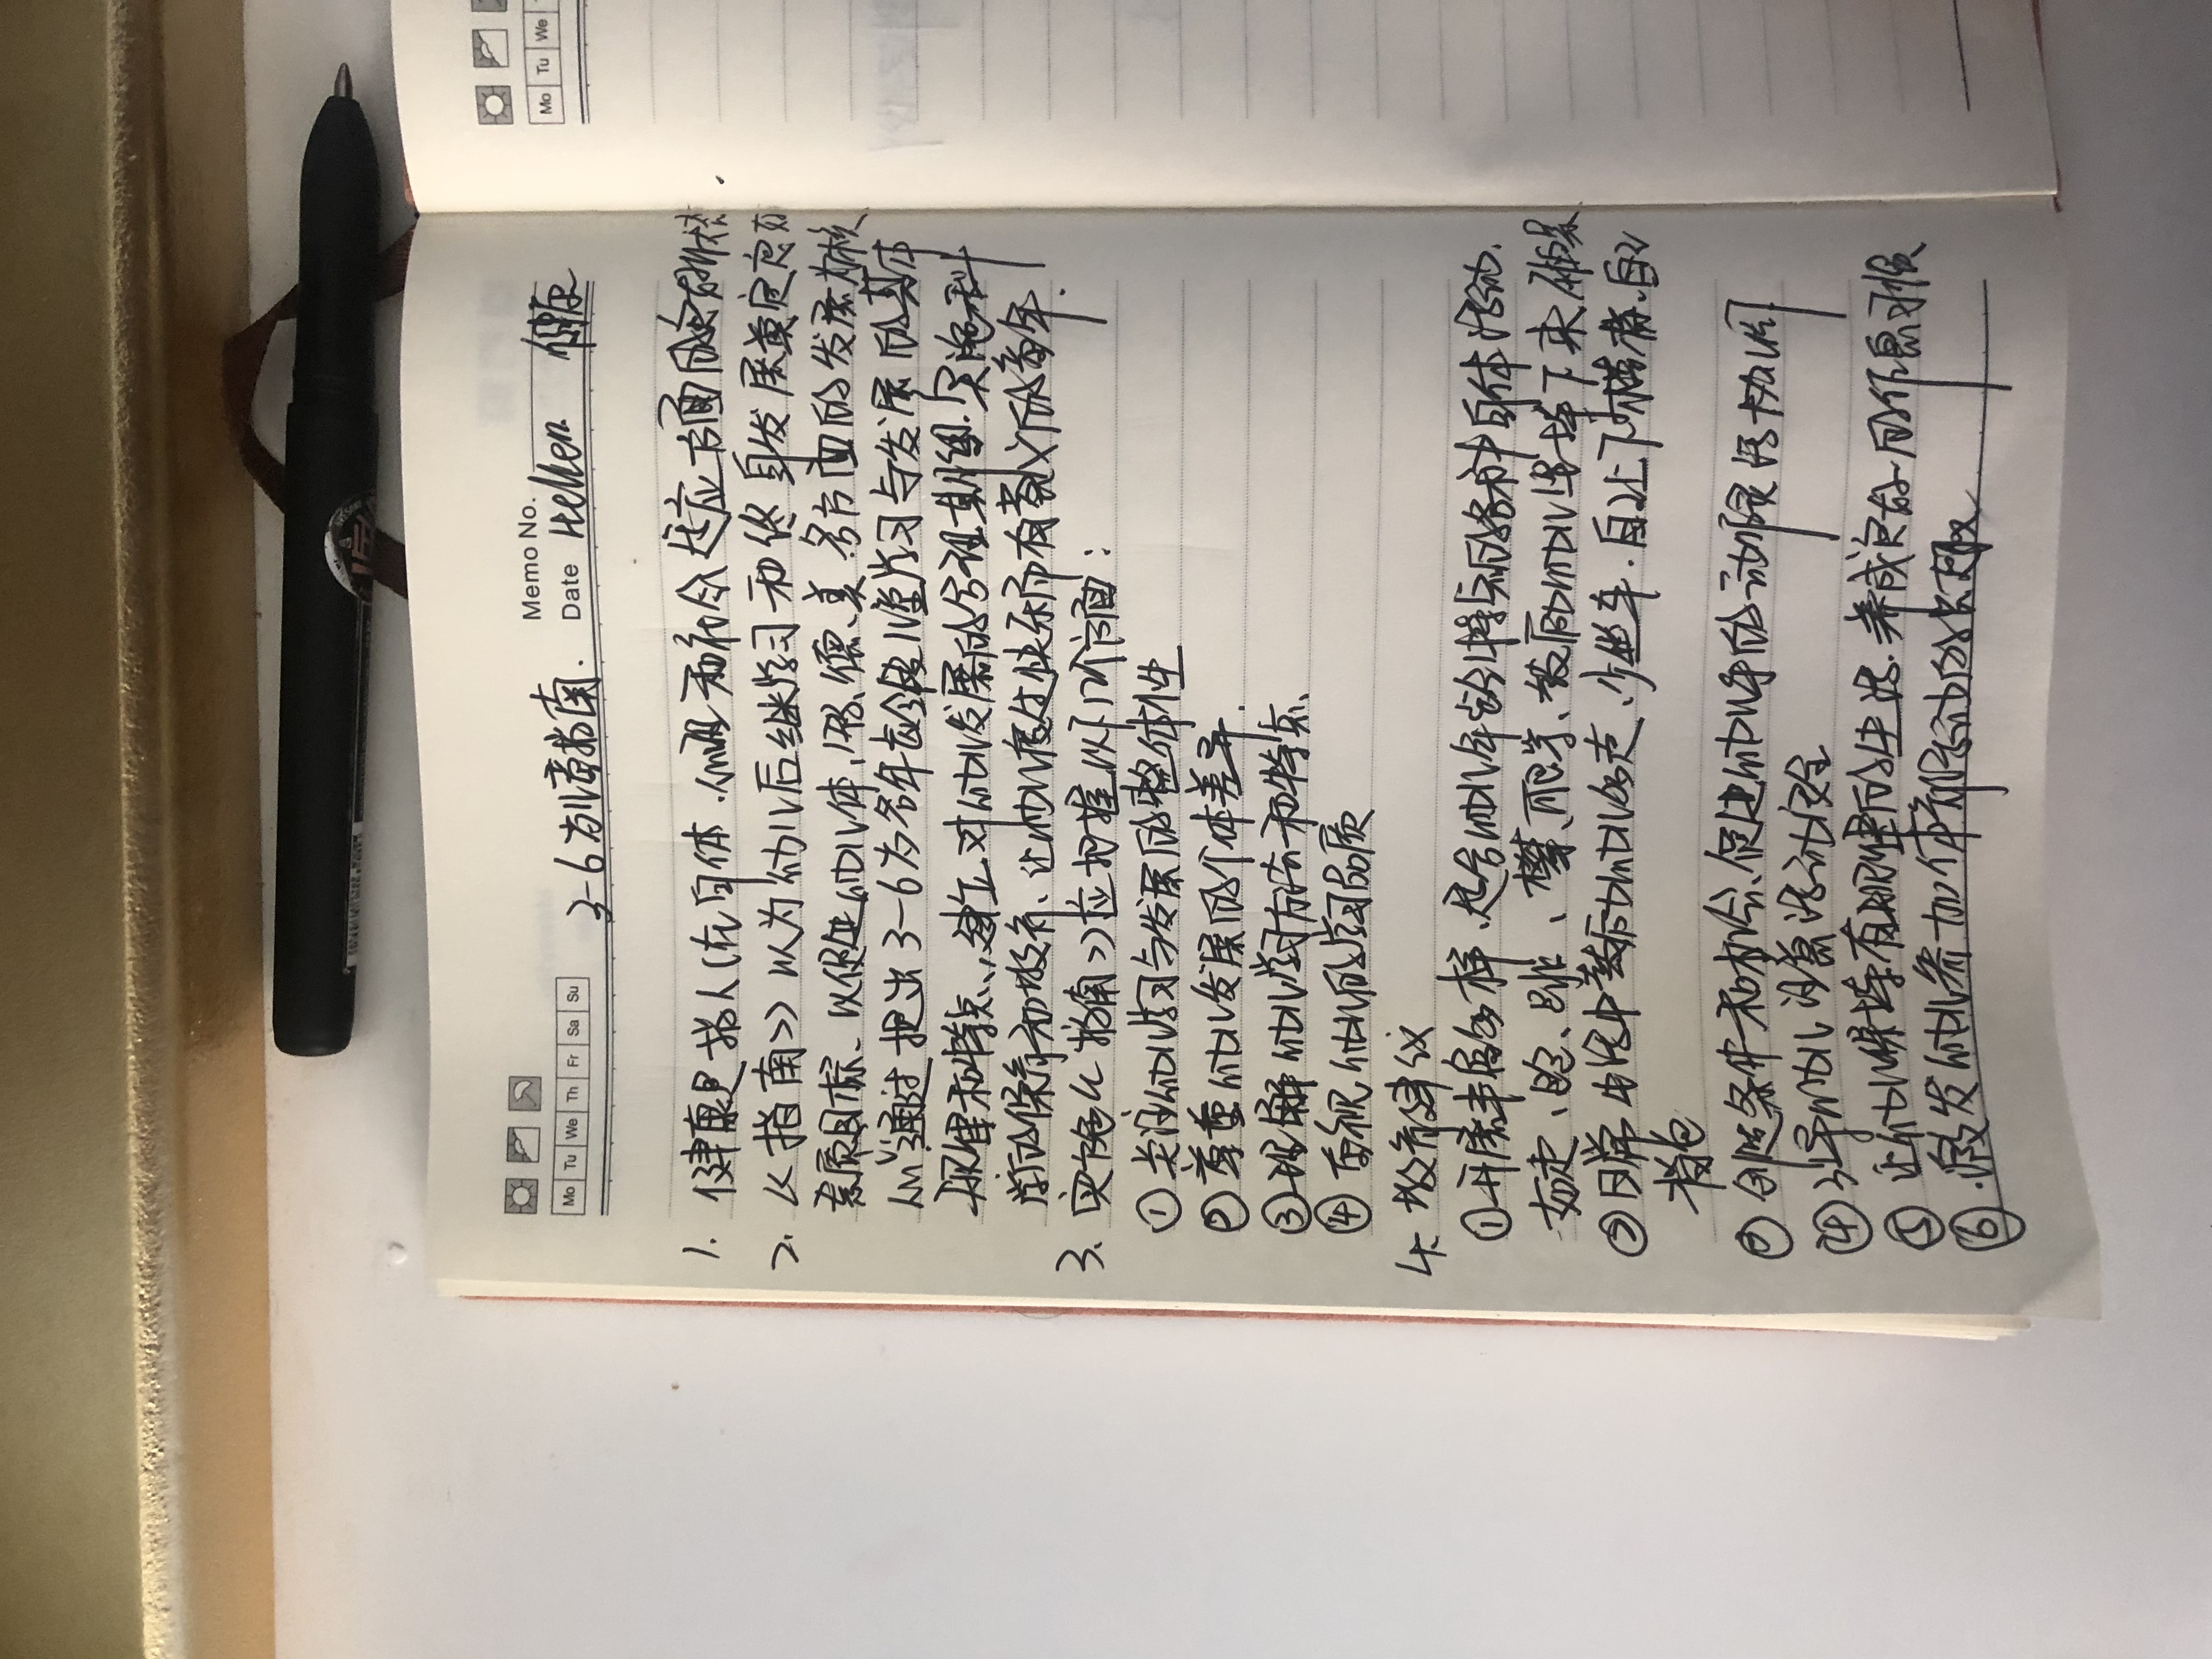 Memo No.
Mo Tu We Th Fr Sa Su
Date Hellen
3-6岁儿童指南.
1. 健康是指人在身体.心理和社会适应方面的良好状态
2. 《指南》以为幼儿后继学习和终身发展奠定良好
素质目标、以促进幼儿体、智、德、美各方面的发展为核心
通过提出3-6岁各年龄段儿童学习与发展的具体
建立对幼儿发展的合理期望.实施科
学的保育和教育、让幼儿度过快乐而有意义的童年.
3. 实施《指南》应把握以下几个方面:
① 关注幼儿学习与发展的整体性
② 尊重幼儿发展的个体差异.
③ 理解幼儿学习方法和特点.
④ 重视幼儿的学习品质
4. 教育建议
① 开展丰富多样、适合幼儿年龄特点的各种身体活动.
如走、跑、跳、攀、爬等、鼓励幼儿坚持下来
② 日常生活中鼓励幼儿多走、少坐车.自己上下楼梯.自己
背包
③ 创造条件和机会、促进幼儿手的动作灵活协调
④ 引导幼儿注意活动安全
⑤ 让幼儿保持有规律的生活.养成良好的作息习惯
⑥ 激发幼儿参加体育活动的兴趣
Mo Tu We